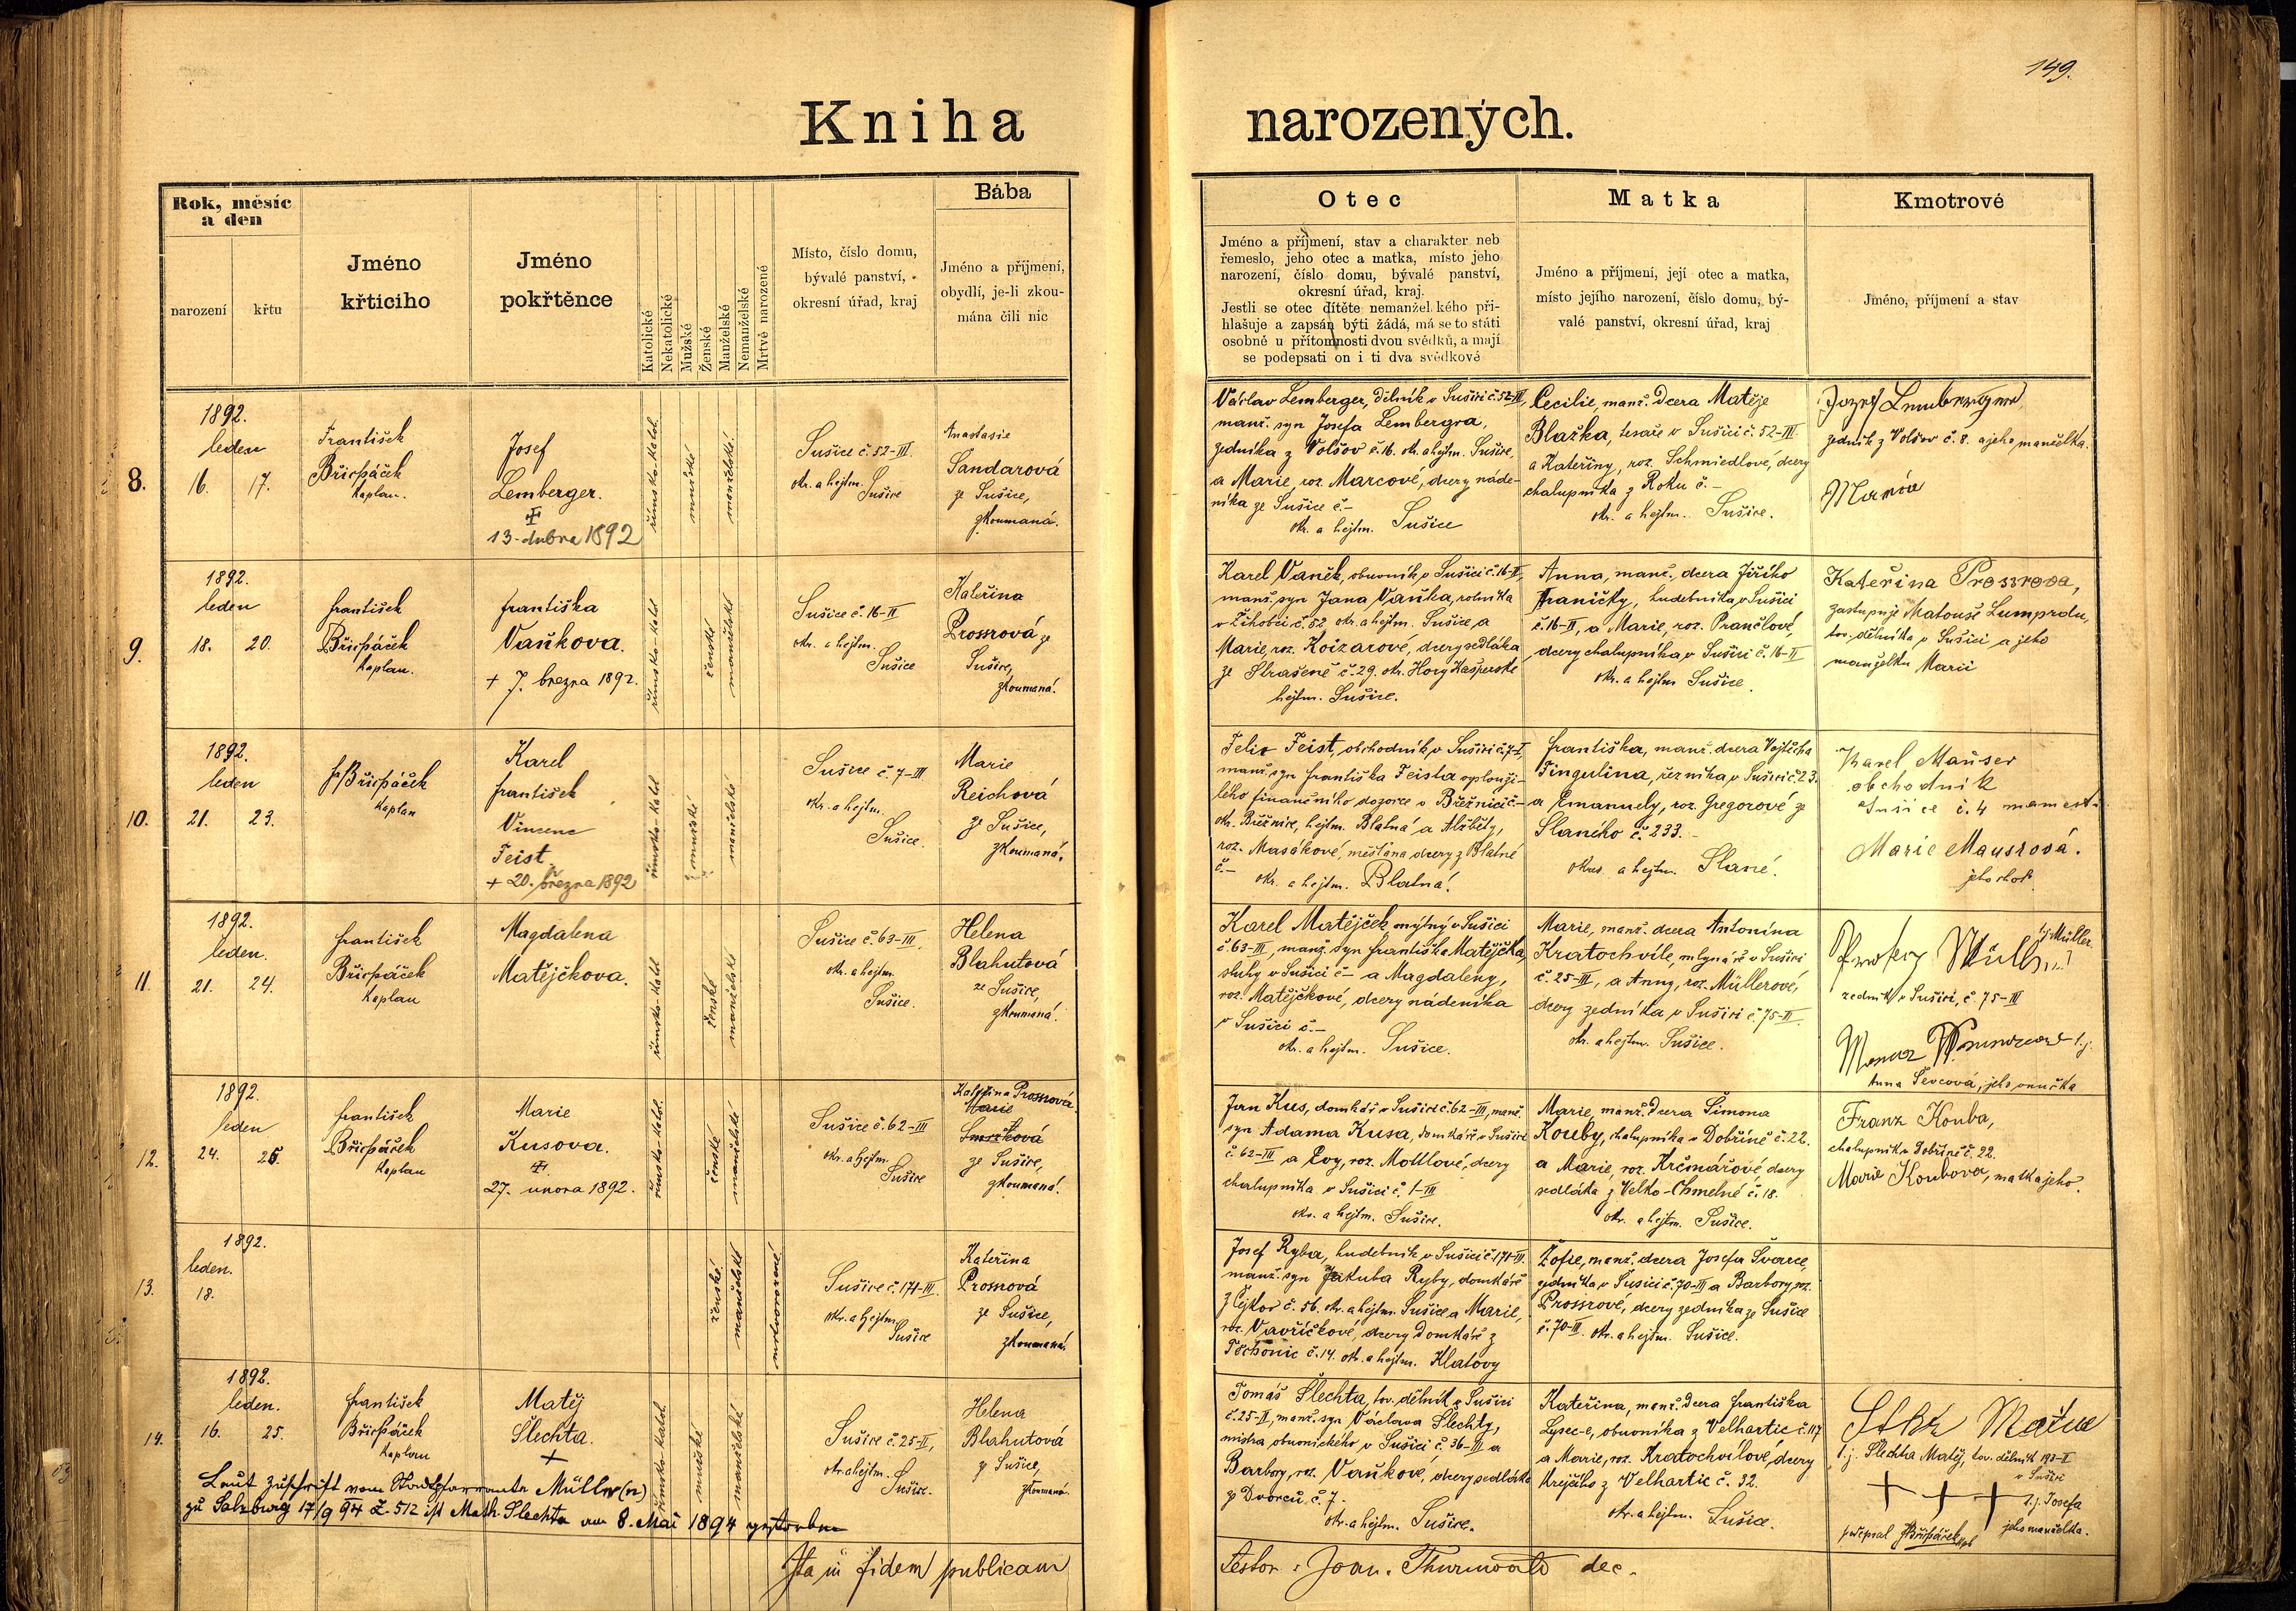 149.
Kniha narozených.
Rok, měsíc
a den
narození
křtu
Jméno
křticího
Jméno
pokřtěnce
Katolické
Nekatolické
Mužské
Ženské
Manželské
Nemanželské
Mrtvě narozené
Místo, číslo domu,
bývalé panství,
okresní úřad, kraj
Bába
Jméno a příjmení,
obydlí, je-li zkou-
mána čili nic
Otec
Jméno a příjmení, stav a charakter neb
řemeslo, jeho otec a matka, místo jeho
narození, číslo domu, bývalé panství,
okresní úřad, kraj.
Jestli se otec dítěte nemanžel.kého při-
hlašuje a zapsán býti žádá, má se to státi
osobně u přítomnosti dvou svědků, a mají
se podepsati on i ti dva svědkové
Matka
Jméno a příjmení, její otec a matka,
místo jejího narození, číslo domu, bý-
valé panství, okresní úřad, kraj
Kmotrové
Jméno, příjmení a stav
8.
1892.
leden
16. 17.
František
Břicháček
kaplan.
Josef
Lemberger.
13. dubna 1892
římsko-katol.
mužské
manželské
Sušice č. 52-III.
okr. a hejtm.
Sušice
Anastasie
Sandarová
ze Sušice,
zkoumaná.
Václav Lemberger, dělník v Sušici č. 52-III,
manž. syn Josefa Lembergra,
zedníka z Volšov č. 16. okr. a hejtm. Sušice,
a Marie, roz. Marcové, dcery náde-
níka ze Sušice č.-
okr. a hejtm. Sušice
Cecilie, manž. dcera Matěje
Blažka, tesaře v Sušici č. 52-III.
a Kateřiny, roz. Schmiedlové, dcery
chalupníka z Roku č.-
okr. a hejtm. Sušice.
Jozef Lemberger
zedník z Volšov č. 8. a jeho manželka.
Maria
9.
1892.
leden
18. 20.
František
Břicháček
kaplan.
Františka
Vaňkova.
+ 7. března 1892.
římsko-katol.
ženské
manželské
Sušice č. 16-II
okr. a hejtm.
Sušice
Kateřina
Prossrová ze
Sušice,
zkoumaná.
Karel Vaněk, obuvník v Sušici č. 16-II,
manž. syn Jana Vaňka, rolníka
v Žihobci č. 52 okr. a hejtm. Sušice, a
Marie, roz. , dcery sedláka
ze Strašeně č. 29. okr. Hory Kašperské
hejtm. Sušice.
Anna, manž. dcera Jiřího
Hraničky, hudebníka v Sušici
č. 16-II, a Marie, roz. Prančlové,
dcery chalupníka v Sušici č. 16-II
okr. a hejtm. Sušice.
Kateřina Prossrova,
zastupuje Matouše Lumprdu,
tov. dělníka v Sušici a jeho
manželku Marii
10.
1892.
leden
21. 23.
Fr Břicháček
kaplan
Karel
František
Vincenc
Feist
+ 20. března 1892
římsko-katol.
mužské
manželské
Sušice č. 7-III
okr. a hejtm.
Sušice.
Marie
Reichová
ze Sušice,
zkoumaná.
Felix Feist, obchodník v Sušici č. 7-I,
manž. syn Františka Feista vyslouži-
lého finančního dozorce v Březnici č.-
okr. Březnice, hejtm. Blatná a Alžběty,
roz. Masákové, měšťana dcery z Blatné
č.- okr. a hejtm. Blatná.
Františka, manž. dcera Vojtěcha
Fingulina, řezníka v Sušici č. 23.
a Emanuely, roz. Gregorové ze
Slaného č. 233.-
okres. a hejtm. Slané.
Karel Mauser
obchodník
Sušice č. 4 na městě
Marie Mausrová.
jeho choť.
11.
1892.
leden.
21. 24.
František
Břicháček
kaplan
Magdalena
Matějčkova.
římsko-katol.
ženské
manželské
Sušice č. 63-III.
okr. a hejtm.
Sušice.
Helena
Blahutová
ze Sušice,
zkoumaná.
Karel Matějček mlýný v Sušici
č. 63-III, manž. syn Františka Matějčka,
sluhy v Sušici č.- a Magdaleny,
roz. Matějčkové, dcery nádeníka
v Sušici č.-
okr. a hejtm. Sušice.
Marie, manž. dcera Antonína
Kratochvíle, mlynáře v Sušici
č. 25-III, a Anny, roz. Müllerové,
dcery zedníka v Sušici č. 75-II.
okr. a hejtm. Sušice.
t.j. Müller.
zedník v Sušici, č. 75-III
t.j.
Anna Ševcová, jeho vnučka
12.
1892.
leden
24. 25.
František
Břicháček
kaplan
Marie
Kusova.
27. února 1892.
římsko-katol.
ženské
manželské
Sušice č. 62-III
okr. a hejtm.
Sušice
Kateřina Prossrová
Marie
Smrčková
ze Sušice,
zkoumaná.
Jan Kus, domkář v Sušici č. 62-III, manž.
syn Adama Kusa, domkáře v Sušici
č. 62-III a Evy, roz. Mottlové, dcery
chalupníka v Sušici č. 1-III
okr. a hejtm. Sušice.
Marie, manž. dcera Šimona
Kouby, chalupníka v Dobříně č. 22.
a Marie, roz. Krčmářové, dcery
sedláka z Velko-Chmelné č. 18.
okr. a hejtm. Sušice.
Franz Kouba,
chalupník v Dobříně č. 22.
Marie Koubova, matka jeho.
13.
1892.
leden.
18.
ženské
manželské
mrtvorozené
Sušice č. 174-III.
okr. a hejtm.
Sušice
Kateřina
Prossrová
ze Sušice,
zkoumaná.
Josef Ryba, hudebník v Sušici č. 174-III.
manž. syn Jakuba Ryby, domkáře
z Čejkov č. 56. okr. a hejtm. Sušice a Marie,
roz. Vavřičkové, dcery domkáře z
Těchonic č. 14. okr. a hejtm. Klatovy
Žofie, manž. dcera Josefa Švarce,
zedníka v Sušici č. 70-III a Barbory, roz.
Prossrové, dcery zedníka ze Sušice
č. 70-III. okr. a hejtm. Sušice.
14.
1892.
leden.
16. 25.
František
Břicháček
kaplan
Matěj
Šlechta.
+
římsko-katol.
mužské
manželské
Sušice č. 25-II,
okr. a hejtm.
Sušice.
Helena
Blahutová
ze Sušice,
zkoumaná.
Tomáš Šlechta, tov. dělník v Sušici
č. 25-II, manž. syn Václava Šlechty,
mistra obuvnického v Sušici č. 36-III a
Barbory, roz. Vaňkové, dcery sedláka
z Dvorců, č. 7.
okr. a hejtm. Sušice.
Kateřina, manž. dcera Františka
Lysec-e, obuvníka z Velhartic č. 117
a Marie, roz. Kratochvílové, dcery
krejčího z Velhartic č. 32.
okr. a hejtm. Sušice.
t.j. Šlechta Matěj, tov. dělník 193-II
v Sušici
+ + + t.j. Josefa
jeho manželka.
podepsal FBřicháček kpl
Laut Zuschrift vom Stadtpfarramte Müllrn (n)
zu Salzburg 17/9 94 Z. 512 ist Math. Slechta am 8. Mai 1894 gestorben
Ita in fidem publicam
Testor: Joan. Thurnwald dec.